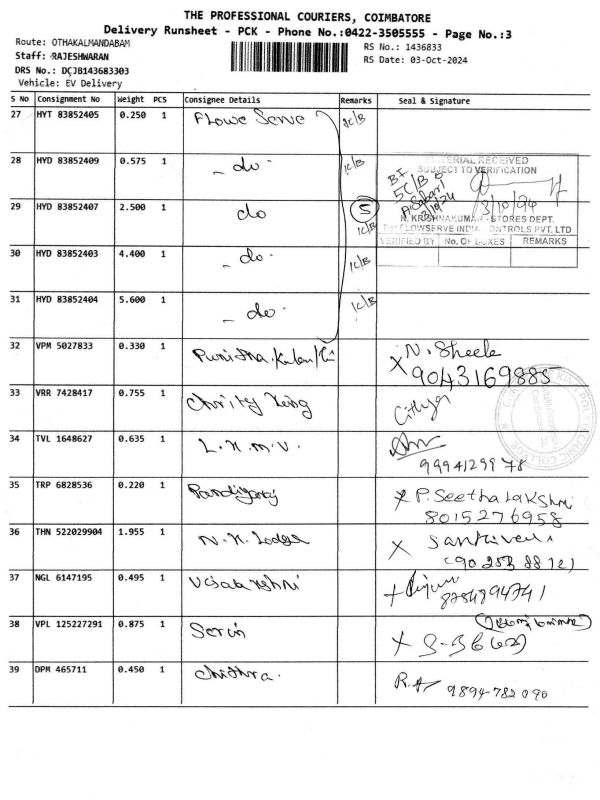 THE PROFESSIONAL COURIERS, COIMBATORE
Delivery Runsheet - PCK - Phone No.:0422-3505555 - Page No.:3
Route: OTHAKALMANDABAM
RS No.: 1436833
Staff: RAJESHWARAN
RS Date: 03-Oct-2024
DRS No.: DCJB143683303
Vehicle: EV Delivery
S No Consignment No Weight PCS Consignee Details Remarks Seal & Signature
27 HYT 83852405 0.250 1 Flowe Serve 1C/B
28 HYD 83852409 0.575 1 - do - 1C/B
MATERIAL RECEIVED
SUBJECT TO VERIFICATION
5C/B
3/10/24
3/10/24
29 HYD 83852407 2.500 1 do 5 1C/B
N. KRISHNAKUMAR - STORES DEPT.
For FLOWSERVE INDIA CONTROLS PVT. LTD
VERIFIED BY No. OF BOXES REMARKS
30 HYD 83852403 4.400 1 - do - 1C/B
31 HYD 83852404 5.600 1 - do - 1C/B
32 VPM 5027833 0.330 1 X N. Sheela
9043169885
33 VRR 7428417 0.755 1
34 TVL 1648627 0.635 1 L.K.M.V.
9994129978
35 TRP 6828536 0.220 1 X P. Seethalakshmi
8015276958
36 THN 522029904 1.955 1 N.K. Lodge X
37 NGL 6147195 0.495 1
8754894741
38 VPL 125227291 0.875 1 X
39 DPM 465711 0.450 1 Chithra. 9894782090